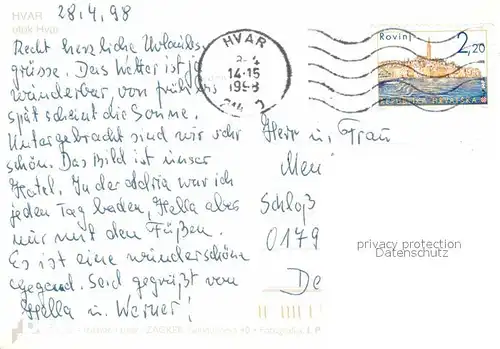 HVAR
otok Hvar
28.4.98
Recht herzliche Urlaubs-
grüsse. Das Wetter ist ja
wunderbar, von früh bis
spät scheint die Sonne.
Untergebracht sind wir sehr
schön. Das Bild ist unser
Hotel. In der Adria war ich
jeden Tag baden, Hella aber
nur mit den Füßen.
Es ist eine wunderschöne
Gegend. Seid gegrüßt von
Hella u. Werner!
HVAR
14-15
1998
2
Rovinj
2,20
REPUBLIKA HRVATSKA
Herr u. Frau
Men
Schloß
0179
De
privacy protection
Datenschutz
ZAGREB